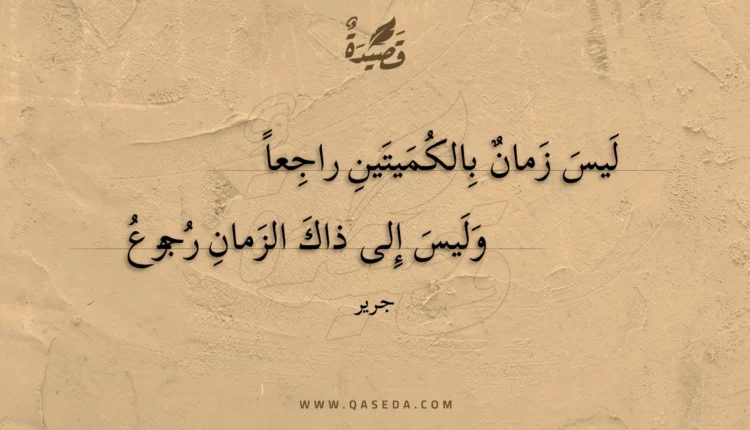 قَصِيْدَةٌ
لَيسَ زَمانٌ بِالكُمَيتَينِ راجِعاً
وَلَيسَ إِلى ذاكَ الزَمانِ رُجوعُ
جرير
WWW.QASEDA.COM